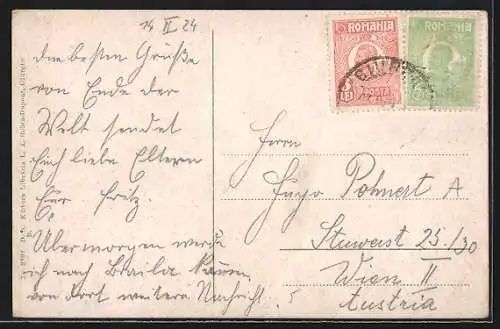 14 II 24
die besten Grüße
von Ende der
Welt sendet
Euch liebe Eltern
Euer Fritz.
Übermorgen werde
ich nach Braila
von dort weitere Nachricht.
ROMANIA
POSTA
ROMANIA
Herrn
Hugo Pohnert A
Stuwerst 25/30
Wien II
Austria